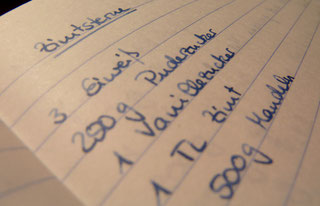 Zimtsterne
3 Eiweiß
250 g Puderzucker
1 Vanillezucker
1 TL Zimt
500g Mandeln